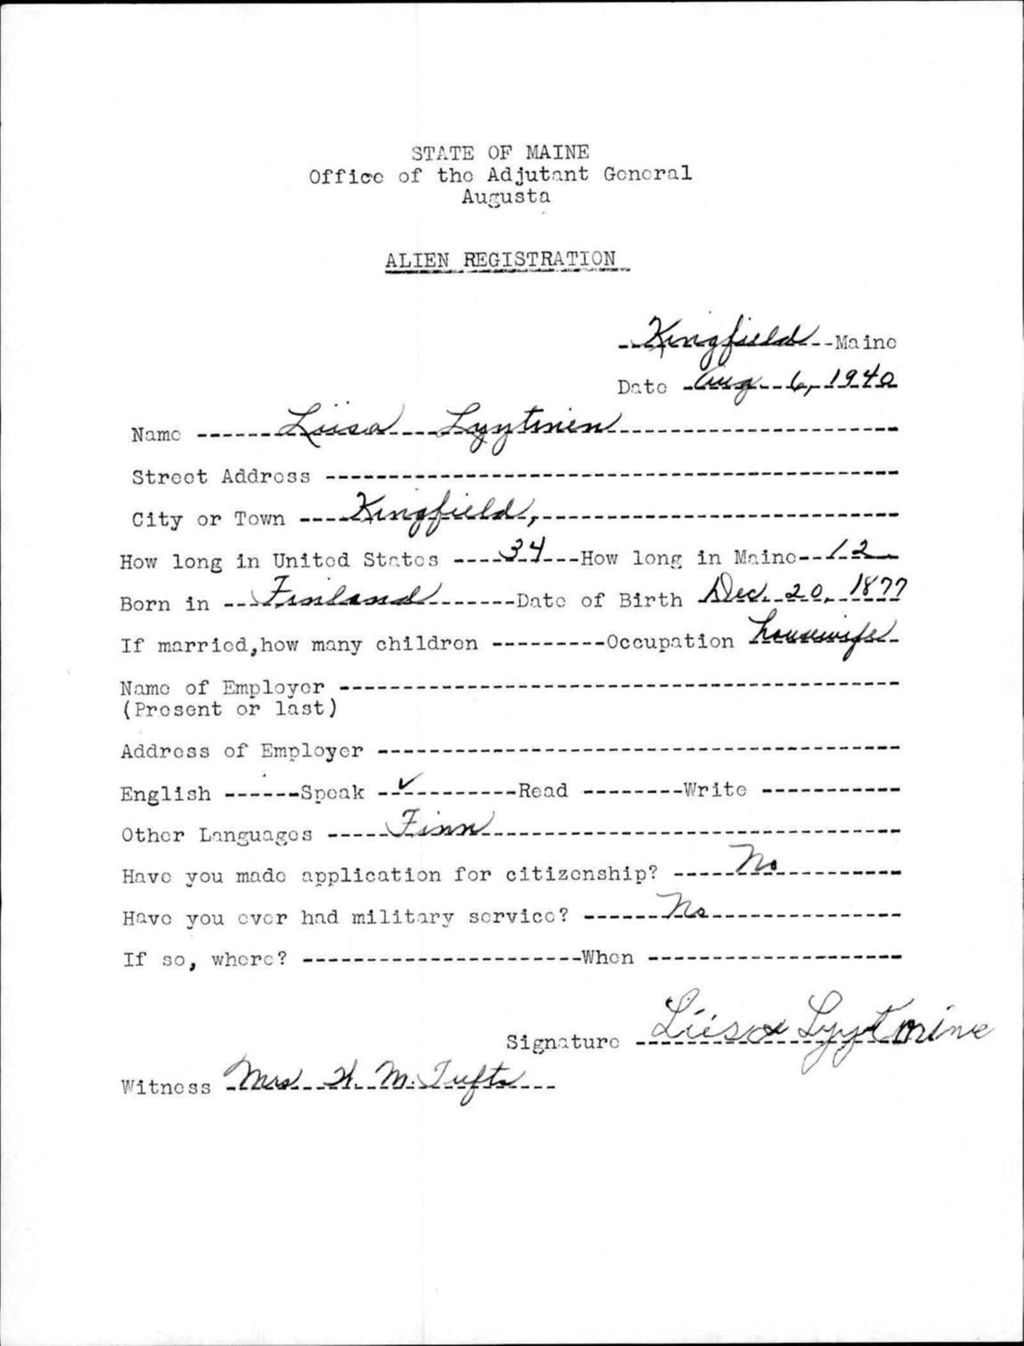 STATE OF MAINE
Office of the Adjutant General
Augusta
ALIEN REGISTRATION
Kingfield Maine
Date Aug 6, 1940
Name Liisa Lyytinen
Street Address
City or Town Kingfield,
How long in United States 34 How long in Maine 12
Born in Finland Date of Birth Dec. 20, 1877
If married, how many children Occupation housewife
Name of Employer
(Present or last)
Address of Employer
English Speak ✓ Read Write
Other Languages Finn
Have you made application for citizenship? No
Have you ever had military service? No
If so, where? When
Signature Liisa Lyytinine
Witness Mrs H. M. Tufts